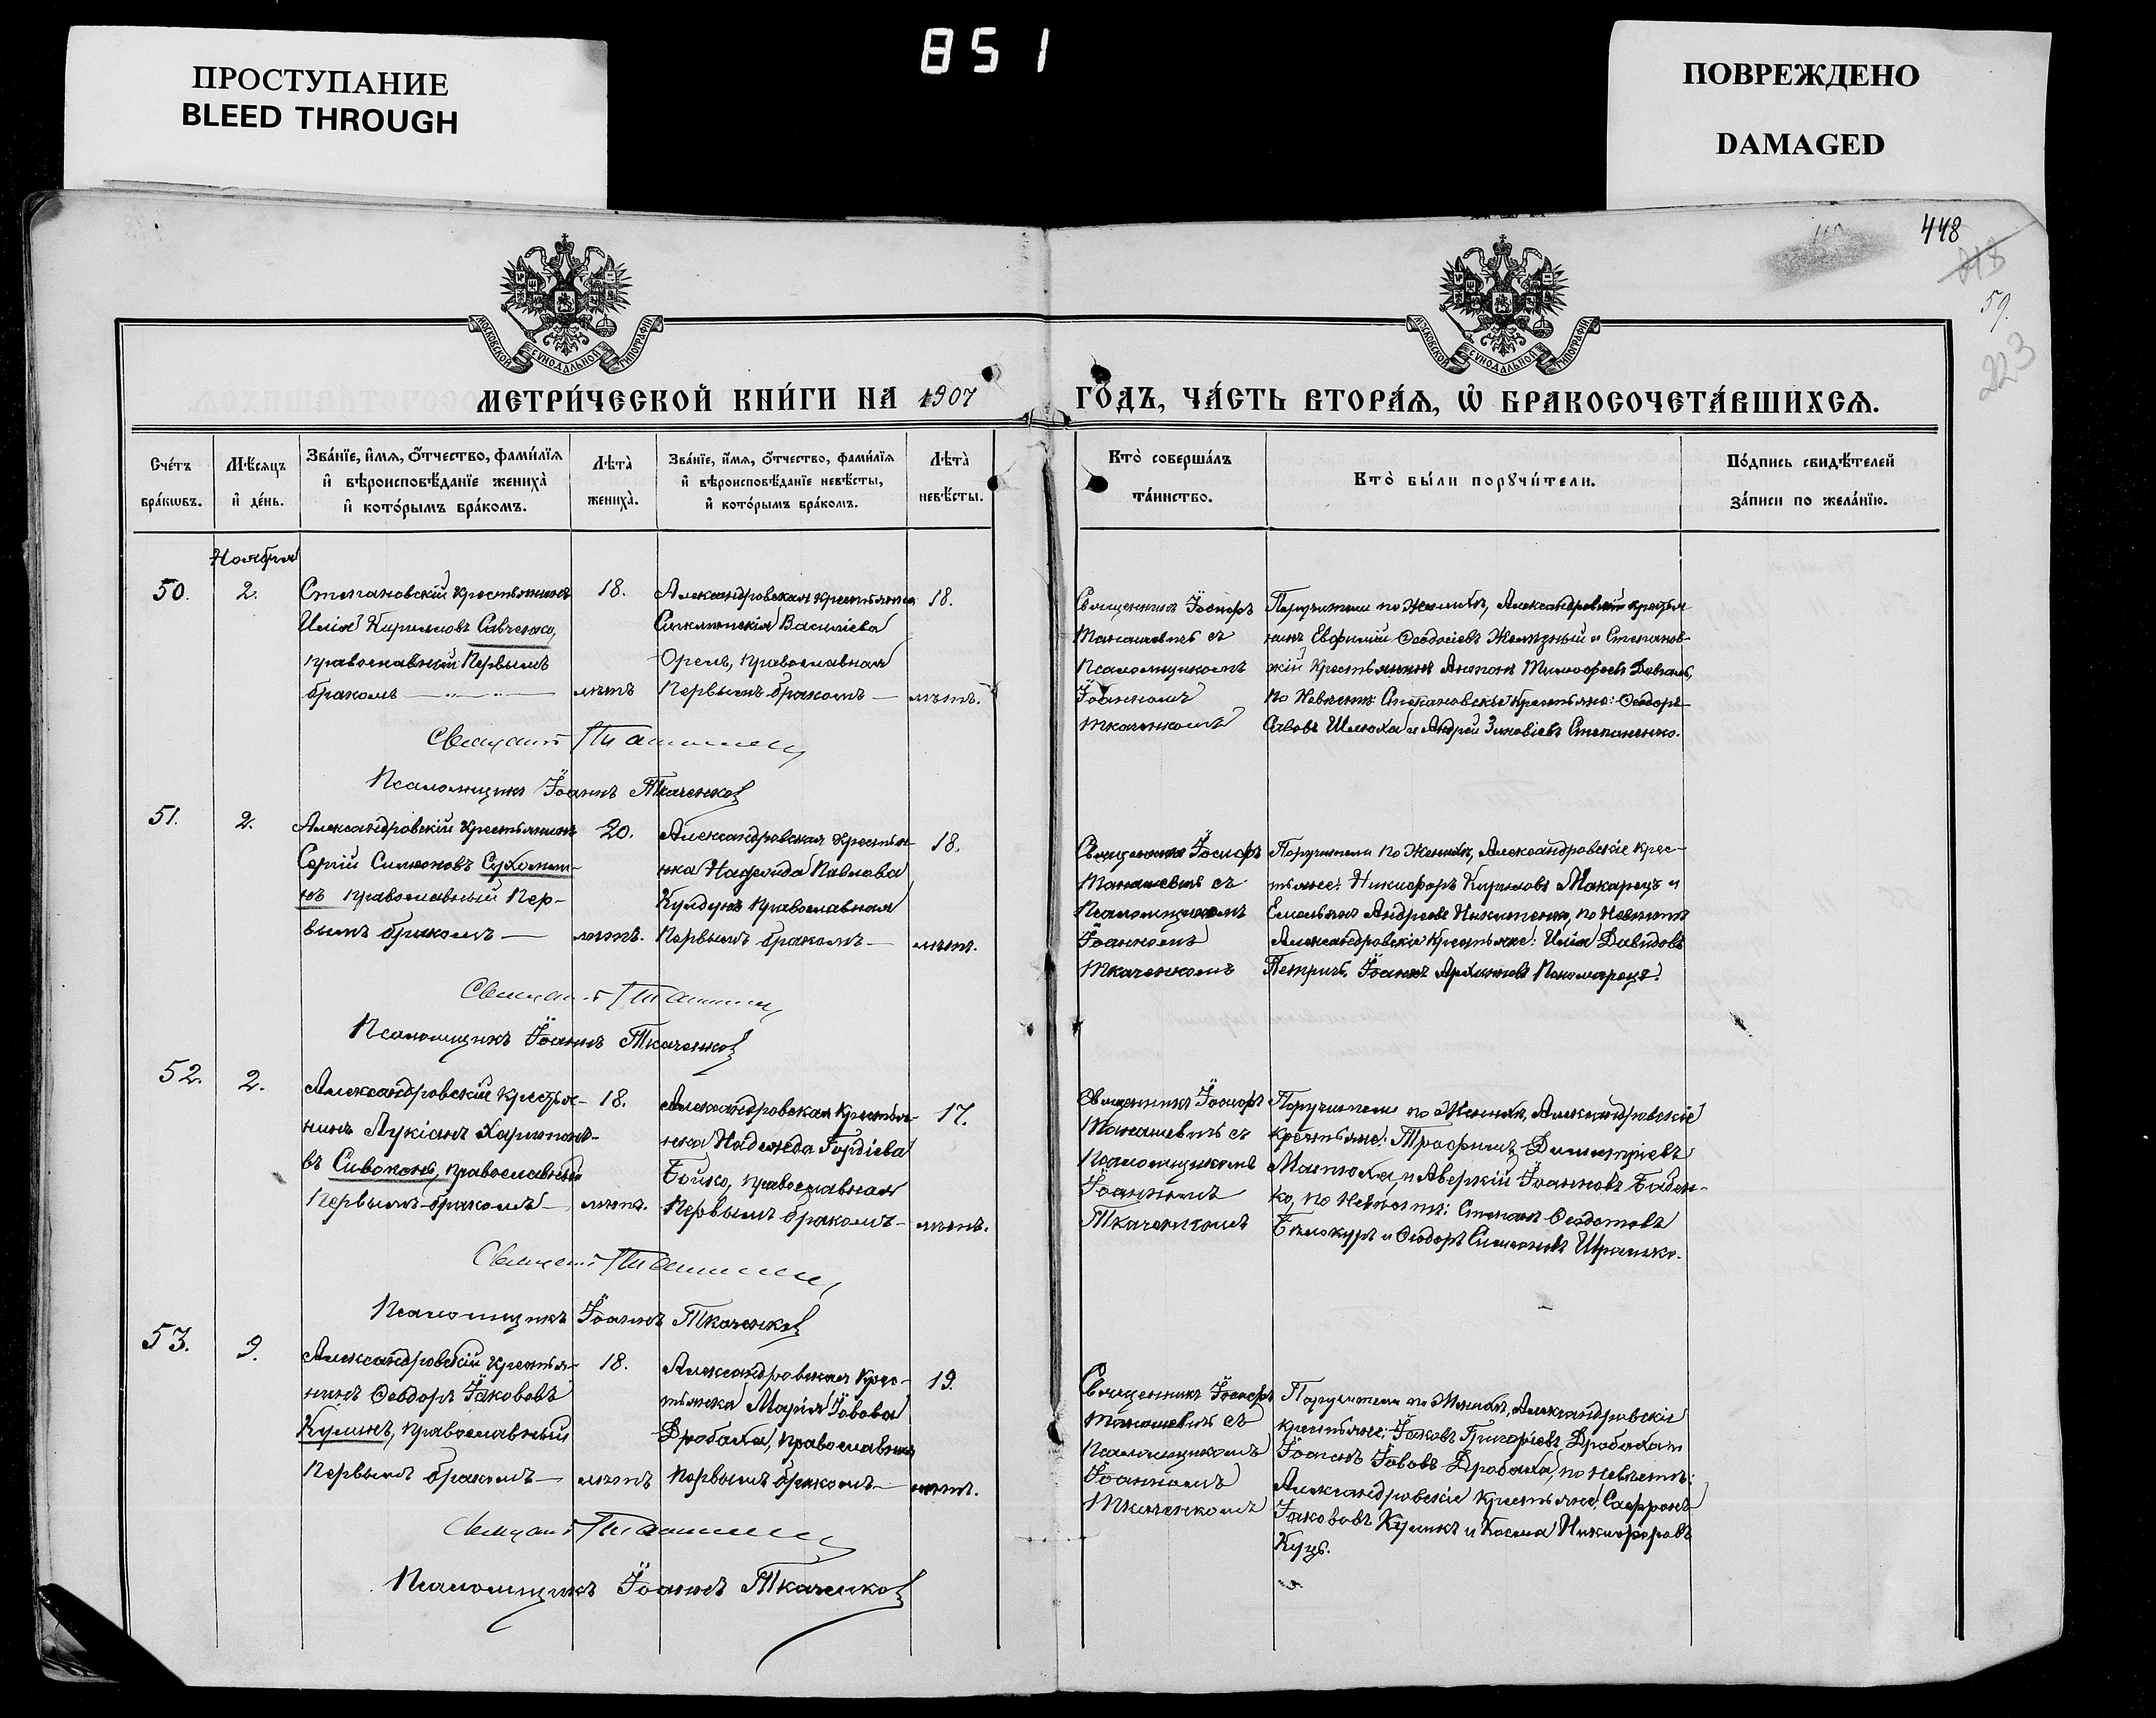 851
ПРОСТУПАНИЕ
BLEED THROUGH
ПОВРЕЖДЕНО
DAMAGED
448
59.
223
МОСКОВСКОЙ СѴНОДАЛЬНОЙ ТИПОГРАФІИ
МОСКОВСКОЙ СѴНОДАЛЬНОЙ ТИПОГРАФІИ
МЕТРИ́ЧЕСКОЙ КНИ́ГИ НА 1907 ГО́ДЪ, ЧА́СТЬ ВТОРА́Ѧ, Ѡ҆ БРАКОСОЧЕТА́ВШИХСѦ.
Сче́тъ
бра́кѡвъ.
Мѣ́сяцъ
и҆ де́нь.
Зва́нїе, и҆́мѧ, ѻ҆́тчество, фами́лїѧ
и҆ вѣроисповѣ́данїе жениха̀
и҆ кото́рымъ бра́комъ.
Лѣта̀
жениха̀.
Зва́нїе, и҆́мѧ, ѻ҆́тчество, фами́лїѧ
и҆ вѣроисповѣ́данїе невѣ́сты,
и҆ кото́рымъ бра́комъ.
Лѣта̀
невѣ́сты.
Кто̀ соверша́лъ
та́инство.
Кто̀ бы́ли порꙋчи́тели.
По́дпись свидѣ́телей
за́писи по жела́нїю.
Ноября
50.
2.
Степановскій крестьянинъ
Илія Кирилловъ Савченко,
православный Первымъ
бракомъ
18.
лѣтъ
Александровская крестьянка
Сигклитикія Василіева
Орелъ, православная
Первымъ бракомъ
18.
лѣтъ.
Священникъ Іосифъ
Манашевичъ съ
Псаломщикомъ
Іоанномъ
Ткаченкомъ
Поручители по Женихѣ, Александровскій крестья
нинъ Евфимій Ѳеодосіевъ Желѣзный и Степанов-
скій Крестьянинъ Антонъ Тимофеевъ
по Невѣстѣ Степановскіе Крестьяне: Ѳеодоръ
Саввовъ Шелюха и Андрей Зиновіевъ Степаненко.
Священникъ
Псаломщикъ Іоаннъ Ткаченко
51.
2.
Александровскій Крестьянинъ
Сергій Симеоновъ Сухомли-
нъ православный Пер-
вымъ бракомъ
20.
лѣтъ.
Александровская Крестья-
нка Павлова
Кулдунъ православная
Первымъ бракомъ
18.
лѣтъ.
Священникъ Іосифъ
Манашевичъ съ
Псаломщикомъ
Іоанномъ
Ткаченкомъ
Поручители по Женихѣ, Александровскіе Крес-
тьяне: Никифоръ Кирилловъ Макарецъ и
Емельянъ Андреевъ Никитенко, по Невѣстѣ
Александровскіе Крестьяне: Илія Давидовъ
Петричъ, Іоаннъ Архиповъ Пономарецъ.
Священникъ
Псаломщикъ Іоаннъ Ткаченко
52.
2.
Александровскій Крестья-
нинъ Лукіанъ Харитоно-
въ Сивоконь, православный
Первымъ бракомъ
18.
лѣтъ.
Александровская Крестья-
нка Надежда Гордіева
Бойко, православная
Первымъ бракомъ
17.
лѣтъ.
Священникъ Іосифъ
Манашевичъ съ
Псаломщикомъ
Іоанномъ
Ткаченкомъ
Поручители по Женихѣ, Александровскіе
крестьяне: Трофимъ Димитріевъ
Матюха, и Аверкій Іоанновъ Бабен-
ко, по Невѣстѣ: Степанъ Ѳеодотовъ
Бѣлокуръ и Ѳеодоръ Симеоновъ
Священникъ
Псаломщикъ Іоаннъ Ткаченко
53.
9.
Александровскій крестья-
нинъ Ѳеодоръ Іакововъ
Куликъ, православный
Первымъ бракомъ
18.
лѣтъ
Александровская Крес-
тьянка Марія Іовова
Дробаха, православная
Первымъ бракомъ
19.
лѣтъ.
Священникъ Іосифъ
Манашевичъ съ
Псаломщикомъ
Іоанномъ
Ткаченкомъ
Поручители по Женихѣ, Александровскіе
крестьяне: Іаковъ Григоріевъ Дробаха и
Іоаннъ Іововъ Дробаха, по Невѣстѣ:
Александровскіе Крестьяне: Сафронъ
Іакововъ Куликъ и Косма Никифоровъ
Куцъ.
Священникъ
Псаломщикъ Іоаннъ Ткаченко